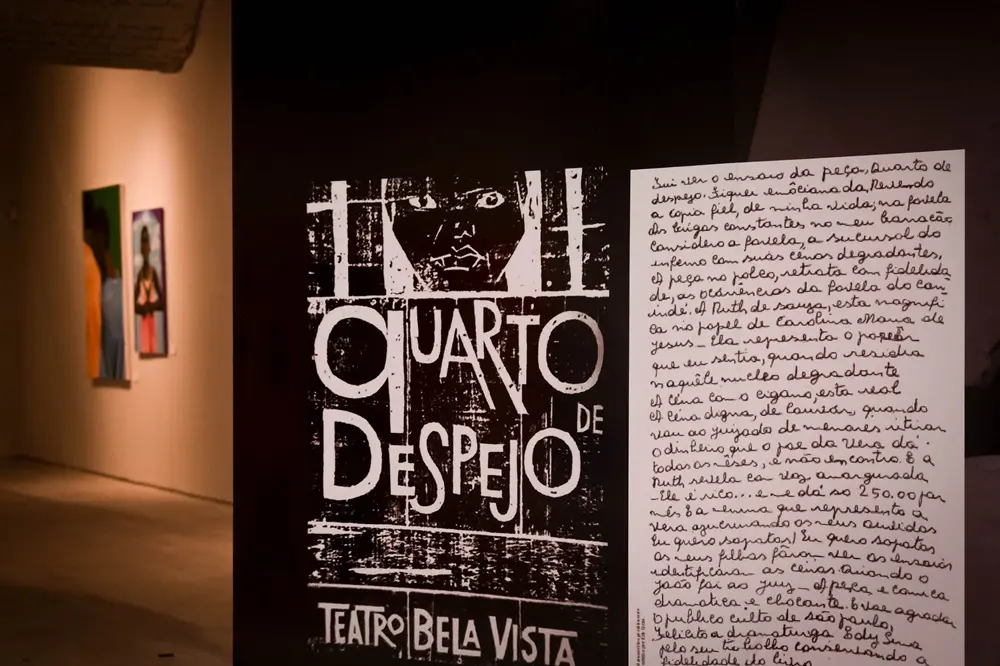 QUARTO
DE
DESPEJO
TEATRO BELA VISTA
Fui ver o ensaio da peça, Quarto de
despejo. Fiquei emôcionada, Revendo
a copia fiel, de minha vida, na favela
As brigas constantes no meu barracão
Considero a favela, a sucursal do
inferno com suas cênas degradantes,
A peça no palco, retrata com fidelida
de, as ocorrências da favela do Can-
indé. A Ruth de Souza, esta magnifi
ca no papel de Carolina Maria de
Jesus— Ela representa o
que eu sentia, quando residia
naquêle nucleo degradante
A cêna com o cigano, esta real
A cêna digna, de louvor, quando
vou ao juizado de menores retirar
o dinheiro que o pae da Vera dá
todos os mêses, e não encontro. E a
Ruth revela com voz amargurada
—Ele é rico... e me dá so 250.00 por
mês E a menina que representa a
Vera azucrinando os meus ouvidos
Eu quero sapatos! Eu quero sapatos
Os meus filhos fôram ver os ensaios
identificaram as cênas quando o
João foi ao juiz— A peça e comica
dramatica, e chocante. E vae agradar
o publico culto de são paulo,
Felicito a dramaturga Edy Lima
pelo seu trabalho conservando a
fidelidade do livro